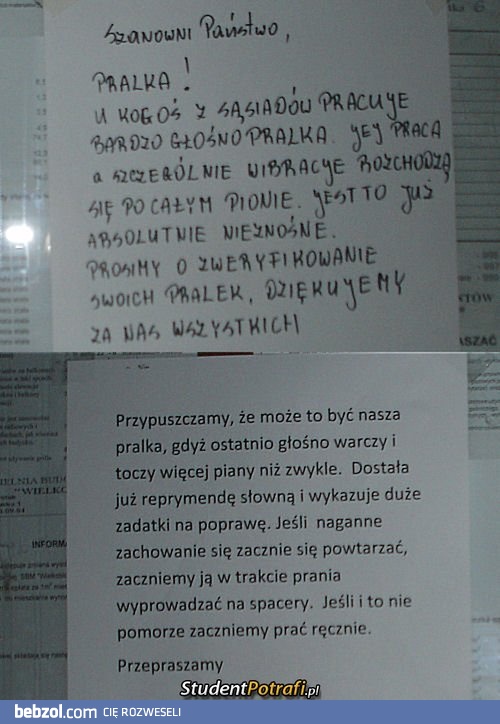 Szanowni Państwo,
PRALKA!
U KOGOŚ Z SĄSIADÓW PRACUJE
BARDZO GŁOŚNO PRALKA. JEJ PRACA
a SZCZEGÓLNIE WIBRACJE ROZCHODZĄ
SIĘ PO CAŁYM PIONIE. JEST TO JUŻ
ABSOLUTNIE NIEZNOŚNE.
PROSIMY O ZWERYFIKOWANIE
SWOICH PRALEK, DZIĘKUJEMY
ZA NAS WSZYSTKICH
Przypuszczamy, że może to być nasza
pralka, gdyż ostatnio głośno warczy i
toczy więcej piany niż zwykle. Dostała
już reprymendę słowną i wykazuje duże
zadatki na poprawę. Jeśli naganne
zachowanie się zacznie się powtarzać,
zaczniemy ją w trakcie prania
wyprowadzać na spacery. Jeśli i to nie
pomorze zaczniemy prać ręcznie.
Przepraszamy
INFORMA
StudentPotrafi.pl
bebzol.com CIĘ ROZWESELI